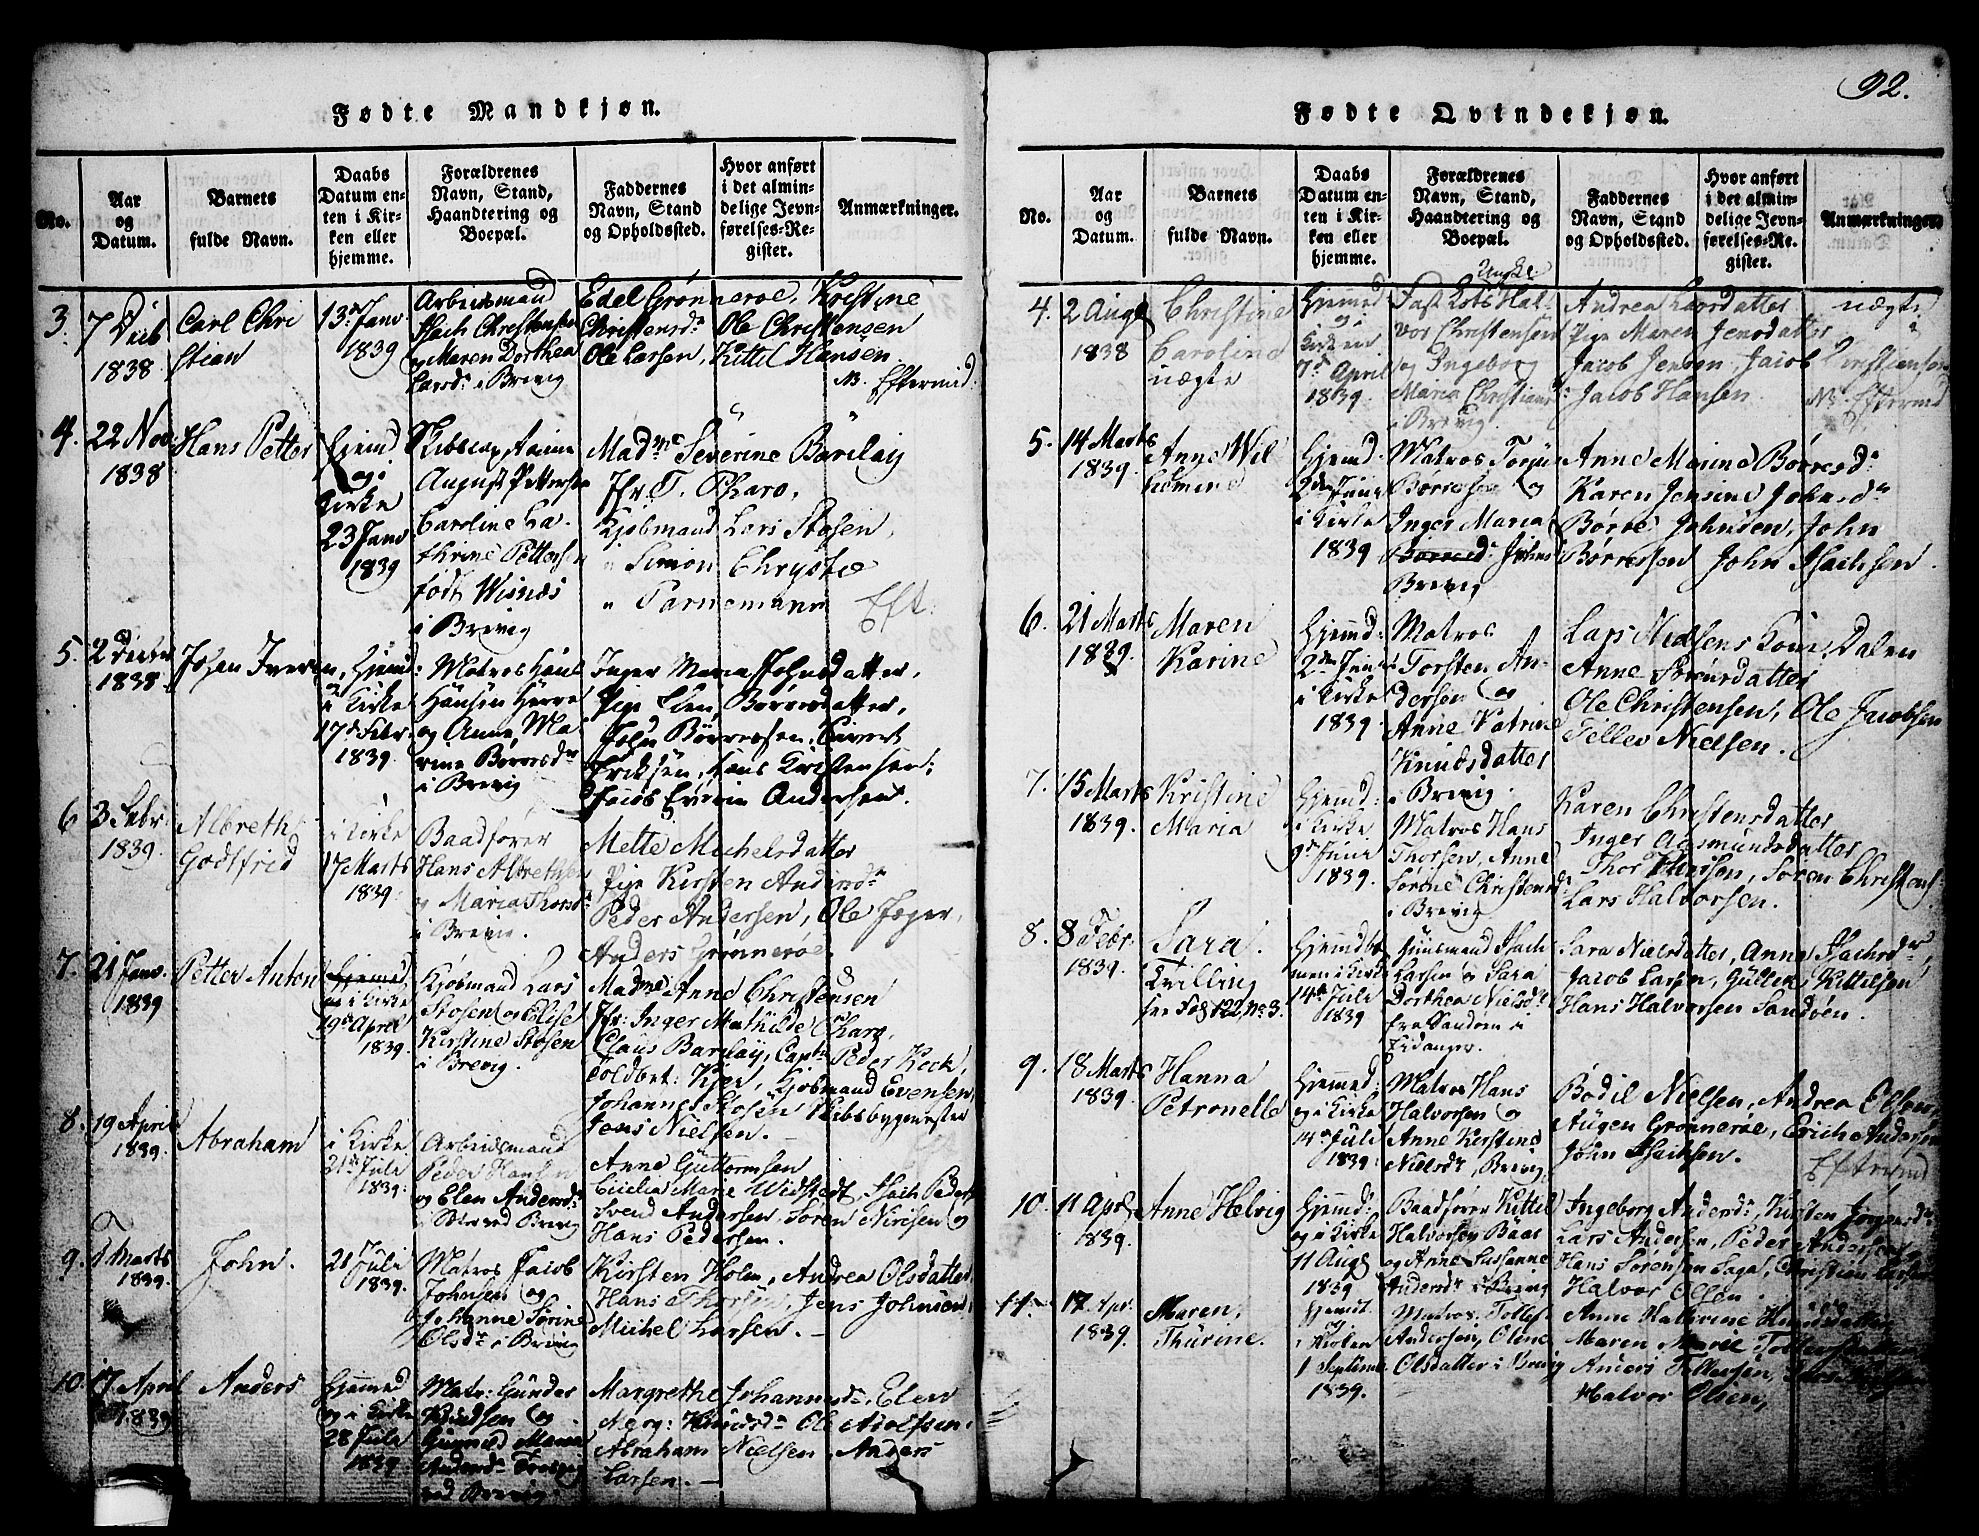 92.
Fødte Mandkjøn.
No.
Aar
og
Datum.
Barnets
fulde Navn.
Daabs
Datum en-
ten i Kir-
ken eller
hjemme.
Forældrenes
Navn, Stand,
Haandtering og
Boepæl.
Faddernes
Navn, Stand
og Opholdssted.
Hvor anført
i det almin-
delige Jevn-
førelses-Re-
gister.
Anmærkninger.
3.
1838
Carl Chri
stian
13 Janv
1839
Arbeidsmand
Isach Christensen
og Maren Dorthea
Larsd. i Brevig
Edel Grønnerøe, Kirstine
Christensd. Ole Christensen
Ole Larsen, Kittil Hansen.
Eftermid
4.
22 Nov.
1838
Hans Petter
Hjemd
og i
Kirke
23 Janv
1839
August Pettersen
Caroline Ca-
thrine Pettersen
født
i Brevig
Mad. Severine Barclay
Jfr. T. Pharo,
Kjøbmand Lars Stosen,
" Simon Chrystie
" Parnemann
Eft.
5.
1838
Johan Iversen,
Hjemd:
i Kirke
17 Febr.
1839.
Matros
Hansen
og Anne Ma
rine Børresd.
i Brevig
Inger Maria Johnsdatter,
Pige Elen Børresdatter,
John Børresen,
Eriksen, Hans Kirstensen:
Jacob Andersen.
6
3 Febr.
1839.
Albreth
Godtfred
i Kirke
17 Marts
1839.
Baadfører
Hans Albrethsen
og Maria Thorsd.
i Brevig.
Mette Michelsdatter
Pige Kirsten Andersd.
Peder Andersen, Ole Jæger,
Anders Grønnerøe
7.
21 Janv.
1839
Petter Anton
i Kirke
19 April
1839.
Kjøbmand Lars
Stosen og Elise
Kirstine Stosen
i Brevig.
Madme Anne Christensen
Jfr: Inger Mathilde Pharo,
Claus Barclay, Capt. Peder Keck,
Toldbet: Kjer, Kjøbmand Evensen,
Johannes Stosen Skibsbygmester
Jens Nielsen. —
8.
19 April
1839.
Abraham
i Kirke
21 Juli
1839.
Arbeidsmand
Peder Hansen
og Elen Andersd.
Brevig
Anne Guttormsen
Cicilia Marie Widstedt, Isach Peders
Svend Andersen, Søren Nielsen og
Hans Pedersen.
9.
Marts
1839.
John.
21 Juli
1839.
Matros Jacob
Johnsen og
Johanne Sørine
Olsd. i Brevig
Kirsten Holm, Andrea Olsdatter,
Hans Thorsen, Jens Johnsen,
Michel Larsen. —
10.
17 April
1839
Anders
Hjemmed
og i Kirke
28 Juli
1839.
Matr: Gunder
Knudsen og
Gunnild Maria
Andersd.
ved Brevig.
Margrethe Johannesd., Elen
Marg: Knudsd. Ole Nielsen,
Abraham Nielsen, Anders
Larsen. —
Fødte Qvindekjøn.
No.
Aar
og
Datum.
Barnets
fulde Navn.
Daabs
Datum en-
ten i Kir-
ken eller
hjemme.
Forældrenes
Navn, Stand,
Haandtering og
Boepæl.
Faddernes
Navn, Stand
og Opholdssted.
Hvor anført
i det almin-
delige Jevn-
førelses-Re-
gister.
Anmærkninger.
4.
2 Aug
1838
Christine
Caroline
uægte
Hjemmed
og i
Kirken
7 April
1839.
Ungk.
Fast Lots Hal-
vor Christensen
og Ingeborg
Maria Christiansd.
i Brevig.
Andrea Larsdatter
Pige Maren Jensdatter
Jacob Jensen, Jacob
Jacob Hansen.
uægte
Eftermid
5.
14 Marts
1839.
Anne Wil
helmine
Hjemd.
2 Juni
i Kirke
1839
Matros
Børresen og
Inger Maria
Johnsd.
Brevig
Anne Marine Børresd.
Karen Jensine Johnsd.
Børre Johnsen, John
Børresen John Isachsen.
6.
21 Marts
1839.
Maren
Karine
Hjemd:
2 Juni
i Kirke
1839.
Matros
Torsten An-
dersen og
Anne Katrine
Knudsdatter
i Brevig.
Lars Nielsens Kone, Dalen
Anne Sørensdatter
Ole Christensen, Ole Jacobsen
Tellev Nielsen.
7.
15 Marts
1839.
Kristine
Maria
Hjemd:
i Kirke
9 Juni
1839.
Matros Hans
Thorsen, Anne
Sørine Christensd.
i Brevig
Karen Christensdatter
Inger Aasmundsdatter
Thor Hansen, Søren Christens
Lars Halvorsen.
8.
8 Febr.
1839.
Sara.
Tvilling
see Fol 122, No 3.
14 Juli
1839
Huusmand Isach
Larsen og Sara
Dorthea Nielsd.
fra Sandøen i
Eidanger.
Sara Nielsdatter, Anne Isachsd.,
Jacob Larsen, Gullen Kittilsen
Hans Halvorsen Sandøen.
9.
18 Marts
1839.
Hanna
Petronelle
Hjemmed:
og i Kirke
14 Juli
1839.
Matros Hans
Halvorsen og
Anne Kirstine
Nielsd. Brevig
Bodil Nielsen, Andrea Olsen,
Augen Grønnerøe, Erich Andersen
John Isachsen.
Eftermid
10.
11 April
1839.
Anne Helvig
Hjemmed:
og i Kirke
11 Aug
1839
Baadfører Kittel
Halvorsen Baas
og Anne Susanne
Andersd. i Brevig
Ingeborg Andersd., Kirsten Jørgensd.
Lars Andersen, Peder Andersen
Hans Sørensen Saga, Christian Larsen
Halvor Olsen.
11.
17 Apr.
1839.
Maren,
Thurine.
Hjemd.
og
i Kirken
1 Septemb.
1839.
Matros. Tollef
Andersen, Oline
Olsdatter i Brevig
Anne Kathrine
Maren Marie
Anders Tollefsen,
Halvor Olsen,